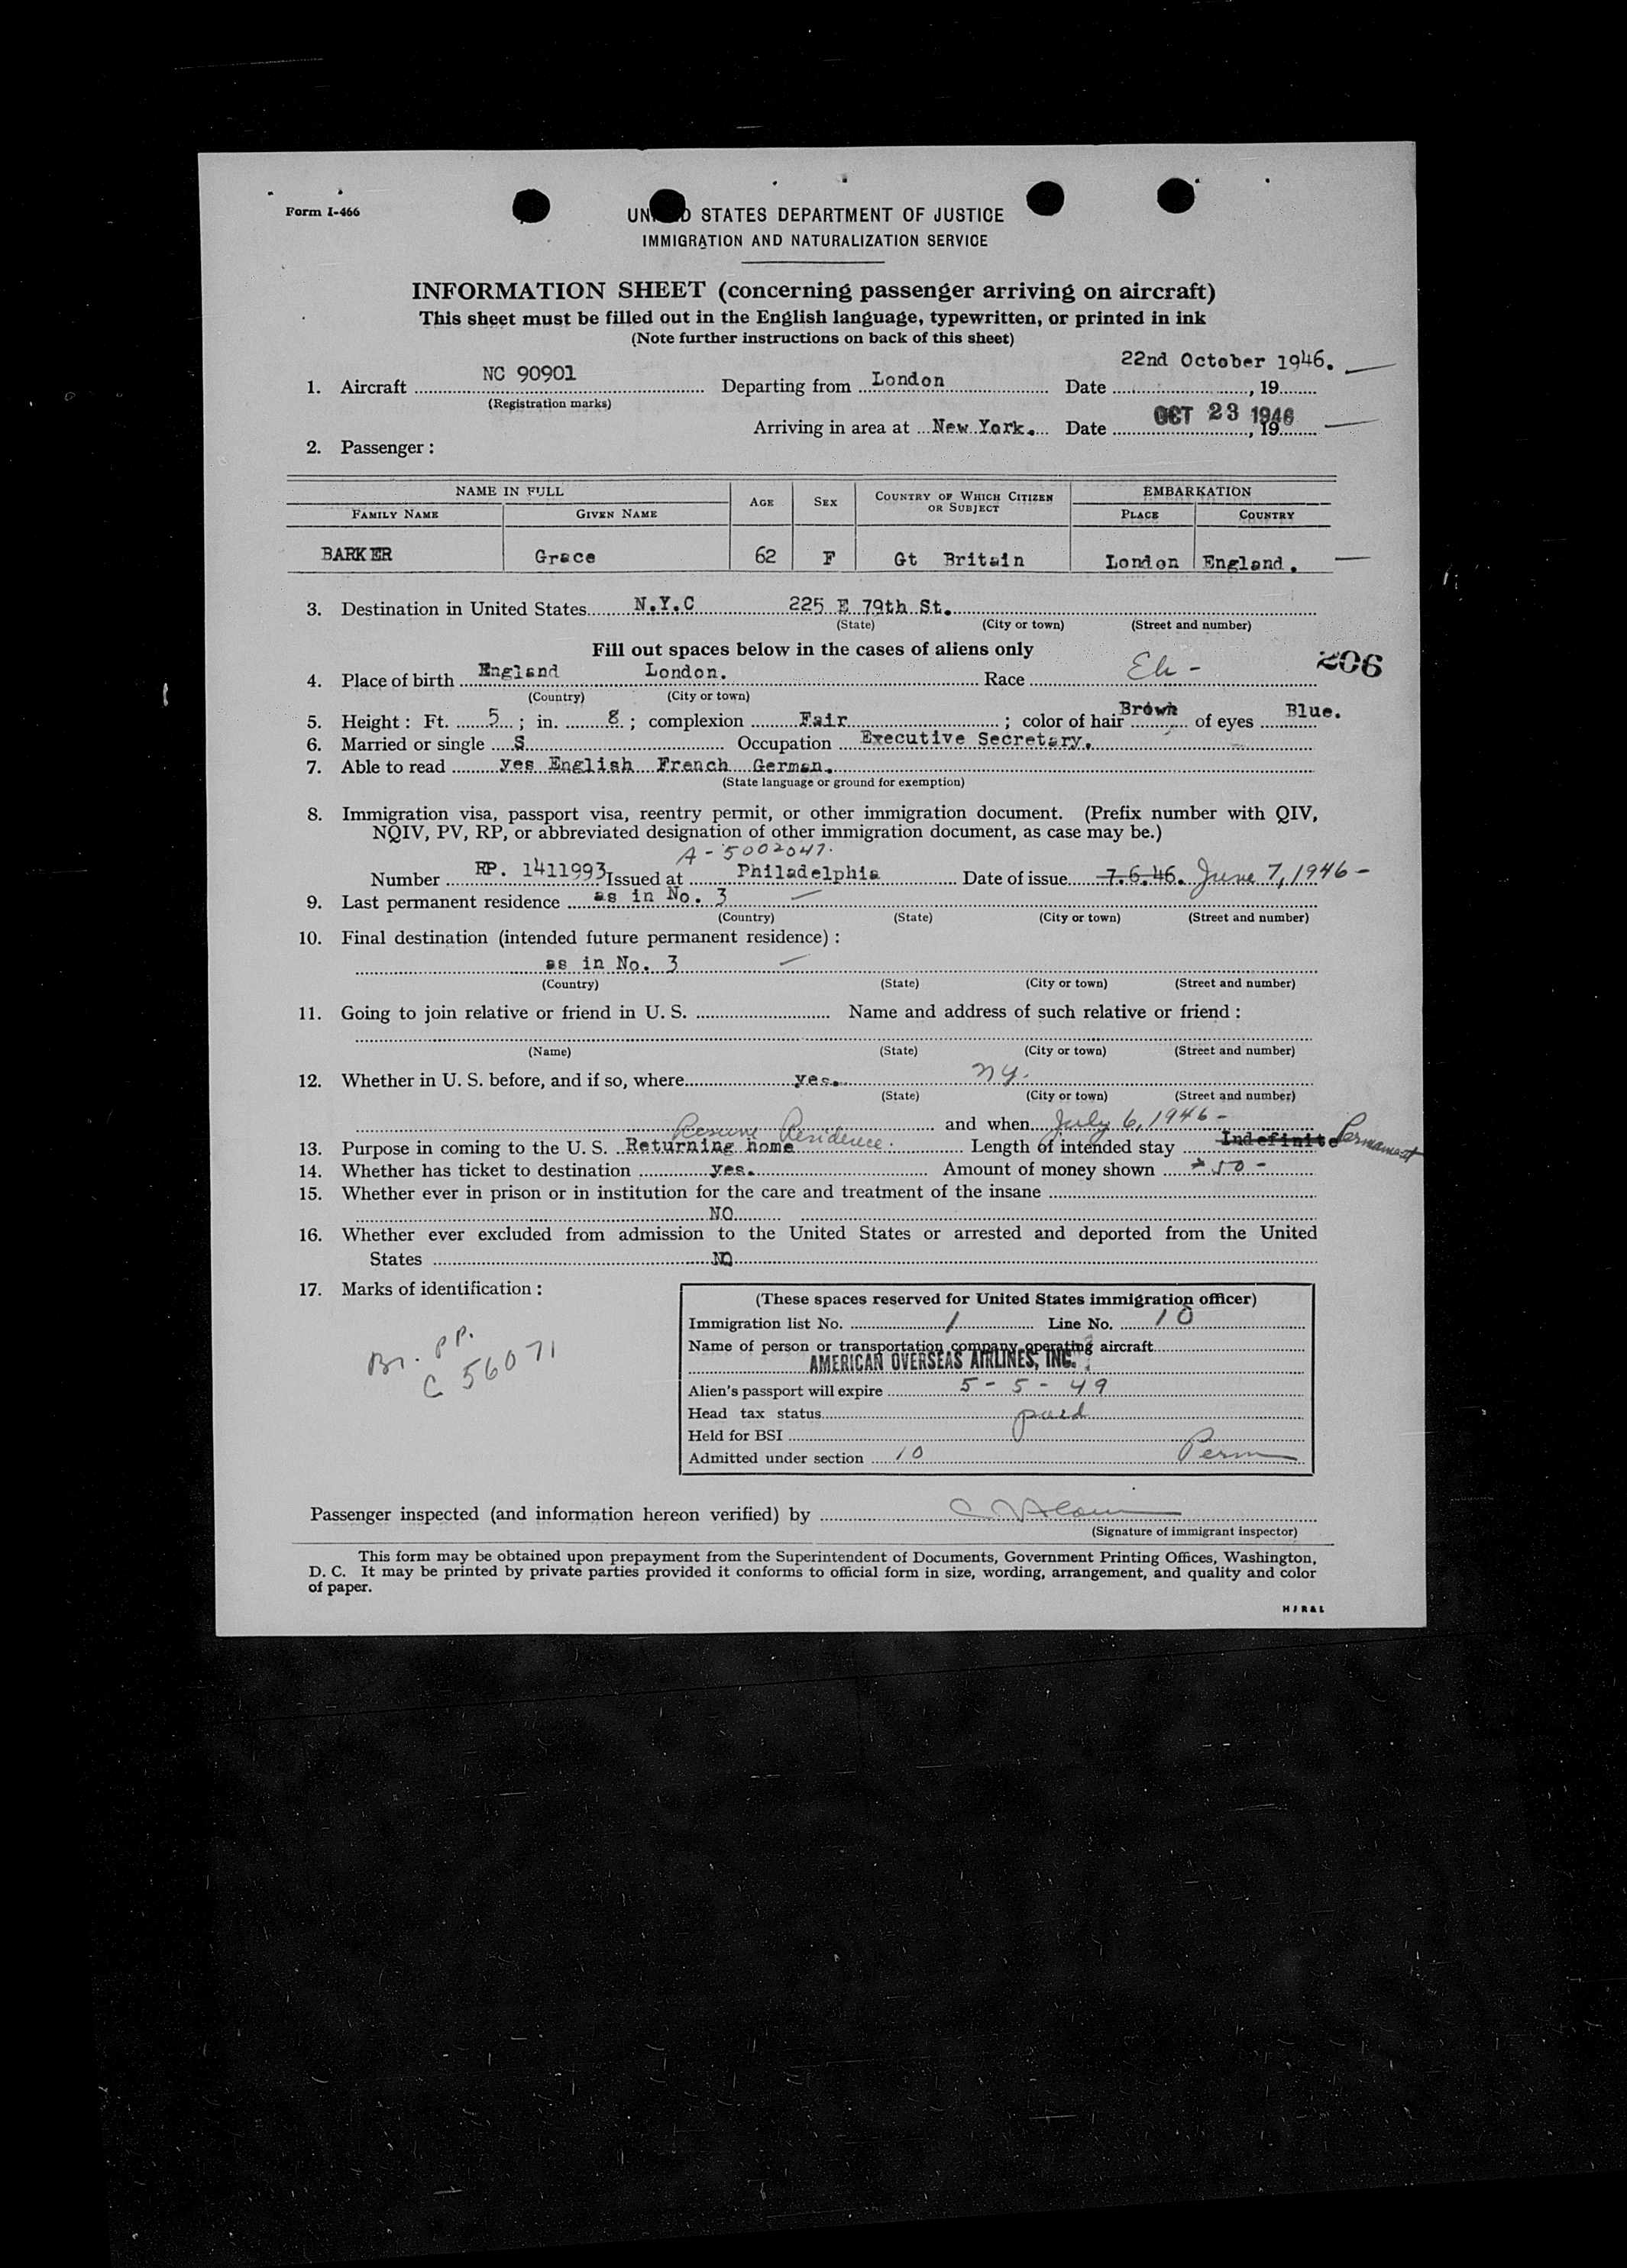 Form I-466
UNITED STATES DEPARTMENT OF JUSTICE
IMMIGRATION AND NATURALIZATION SERVICE
INFORMATION SHEET (concerning passenger arriving on aircraft)
This sheet must be filled out in the English language, typewritten, or printed in ink
(Note further instructions on back of this sheet)
22nd October 1946.
1. Aircraft NC 90901 Departing from London Date , 19
(Registration marks)
Arriving in area at New York. Date OCT 23 1946 , 19
2. Passenger :
NAME IN FULL AGE SEX COUNTRY OF WHICH CITIZEN OR SUBJECT EMBARKATION
FAMILY NAME GIVEN NAME PLACE COUNTRY
BARKER Grace 62 F Gt Britain London England.
3. Destination in United States N.Y.C 225 E 79th St.
(State) (City or town) (Street and number)
Fill out spaces below in the cases of aliens only
206
4. Place of birth England London. Race
(Country) (City or town)
5. Height : Ft. 5 ; in. 8 ; complexion Fair ; color of hair Brown of eyes Blue.
6. Married or single S Occupation Executive Secretary.
7. Able to read yes English French German.
(State language or ground for exemption)
8. Immigration visa, passport visa, reentry permit, or other immigration document. (Prefix number with QIV,
NQIV, PV, RP, or abbreviated designation of other immigration document, as case may be.)
A-5002047.
Number RP. 1411993 Issued at Philadelphia Date of issue 7.6.46. June 7, 1946 -
9. Last permanent residence as in No. 3
(Country) (State) (City or town) (Street and number)
10. Final destination (intended future permanent residence) :
as in No. 3
(Country) (State) (City or town) (Street and number)
11. Going to join relative or friend in U. S. Name and address of such relative or friend :
(Name) (State) (City or town) (Street and number)
12. Whether in U. S. before, and if so, where yes. NY.
(State) (City or town) (Street and number)
and when July 6, 1946 -
Resume Residence.
13. Purpose in coming to the U. S. Returning home Length of intended stay Indefinite Permanent
14. Whether has ticket to destination yes. Amount of money shown 50 -
15. Whether ever in prison or in institution for the care and treatment of the insane
NO
16. Whether ever excluded from admission to the United States or arrested and deported from the United
States NO
17. Marks of identification :
Br. PP.
C 56071
(These spaces reserved for United States immigration officer)
Immigration list No. 1 Line No. 10
Name of person or transportation company operating aircraft
AMERICAN OVERSEAS AIRLINES, INC.
Alien's passport will expire 5-5-49
Head tax status paid
Held for BSI
Admitted under section 10 Perm
Passenger inspected (and information hereon verified) by
(Signature of immigrant inspector)
This form may be obtained upon prepayment from the Superintendent of Documents, Government Printing Offices, Washington,
D. C. It may be printed by private parties provided it conforms to official form in size, wording, arrangement, and quality and color
of paper.
HJR&L